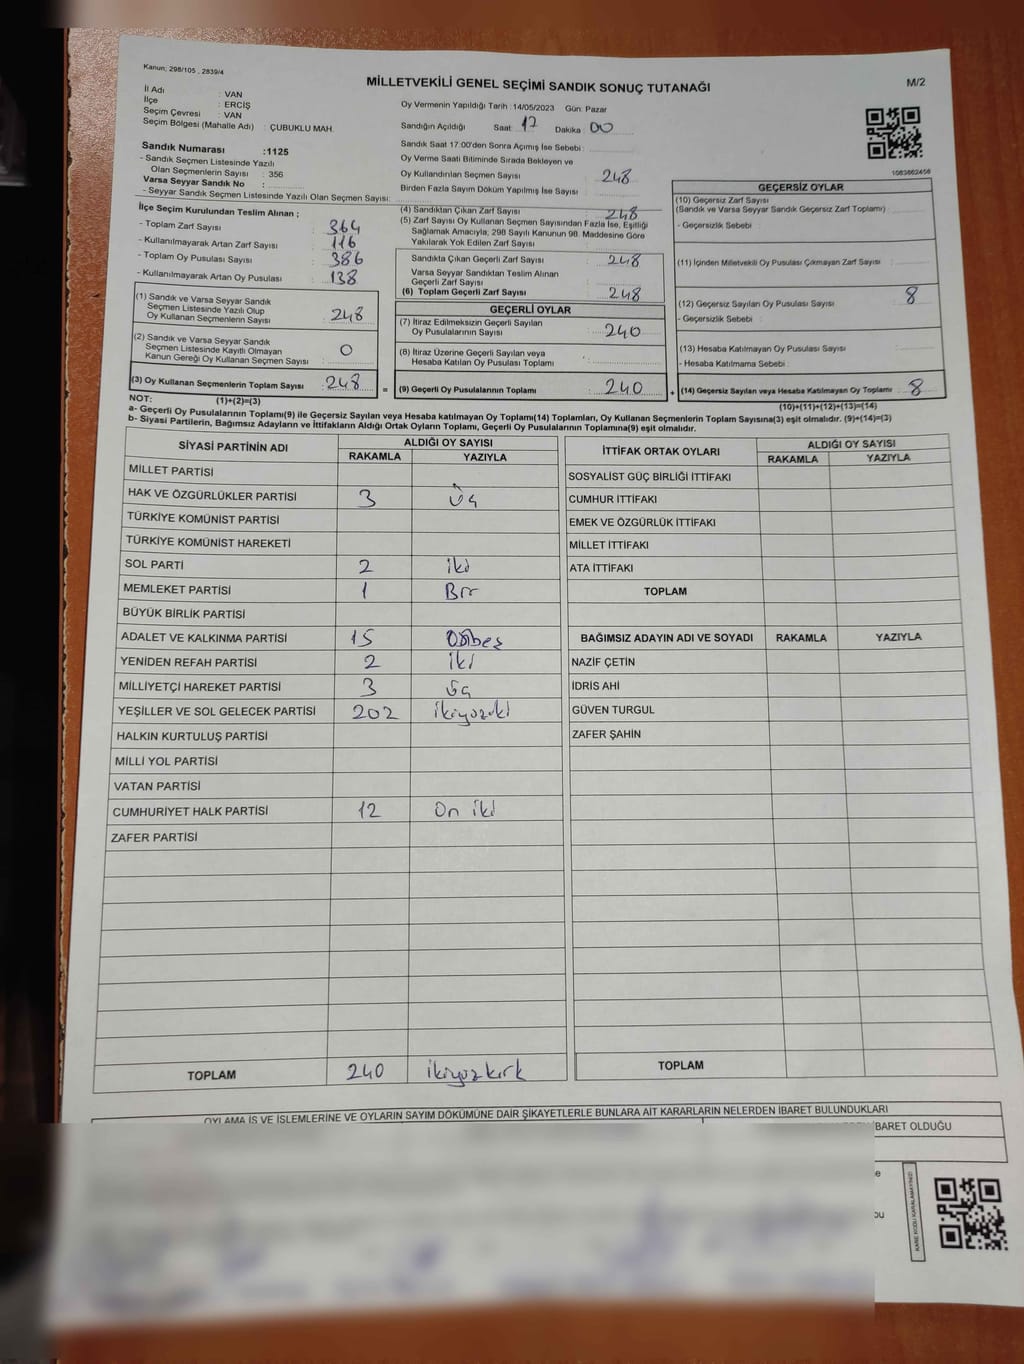 Kanun: 298/105 , 2839/4
MİLLETVEKİLİ GENEL SEÇİMİ SANDIK SONUÇ TUTANAĞI
M/2
İl Adı : VAN
İlçe : ERCİŞ
Seçim Çevresi : VAN
Seçim Bölgesi (Mahalle Adı) : ÇUBUKLU MAH.
Oy Vermenin Yapıldığı Tarih :14/05/2023 Gün: Pazar
Sandığın Açıldığı Saat: 17 Dakika: 00
Sandık Saat 17:00'den Sonra Açımış İse Sebebi :
Oy Verme Saati Bitiminde Sırada Bekleyen ve
Oy Kullandırılan Seçmen Sayısı : 248
Birden Fazla Sayım Döküm Yapılmış İse Sayısı :
1083662456
Sandık Numarası :1125
- Sandık Seçmen Listesinde Yazılı
Olan Seçmenlerin Sayısı : 356
Varsa Seyyar Sandık No :
- Seyyar Sandık Seçmen Listesinde Yazılı Olan Seçmen Sayısı:
İlçe Seçim Kurulundan Teslim Alınan ;
- Toplam Zarf Sayısı : 364
- Kullanılmayarak Artan Zarf Sayısı : 116
- Toplam Oy Pusulası Sayısı : 386
- Kullanılmayarak Artan Oy Pusulası : 138
(1) Sandık ve Varsa Seyyar Sandık
Seçmen Listesinde Yazılı Olup
Oy Kullanan Seçmenlerin Sayısı : 248
(2) Sandık ve Varsa Seyyar Sandık
Seçmen Listesinde Kayıtlı Olmayan
Kanun Gereği Oy Kullanan Seçmen Sayısı : 0
(3) Oy Kullanan Seçmenlerin Toplam Sayısı : 248 =
(4) Sandıktan Çıkan Zarf Sayısı : 248
(5) Zarf Sayısı Oy Kullanan Seçmen Sayısından Fazla İse, Eşitliği
Sağlamak Amacıyla; 298 Sayılı Kanunun 98. Maddesine Göre
Yakılarak Yok Edilen Zarf Sayısı :
Sandıkta Çıkan Geçerli Zarf Sayısı : 248
Varsa Seyyar Sandıktan Teslim Alınan
Geçerli Zarf Sayısı :
(6) Toplam Geçerli Zarf Sayısı : 248
GEÇERLİ OYLAR
(7) İtiraz Edilmeksizin Geçerli Sayılan
Oy Pusulalarının Sayısı : 240
(8) İtiraz Üzerine Geçerli Sayılan veya
Hesaba Katılan Oy Pusulası Toplamı :
(9) Geçerli Oy Pusulalarının Toplamı : 240 +
GEÇERSİZ OYLAR
(10) Geçersiz Zarf Sayısı
(Sandık ve Varsa Seyyar Sandık Geçersiz Zarf Toplamı) :
- Geçersizlik Sebebi :
(11) İçinden Milletvekili Oy Pusulası Çıkmayan Zarf Sayısı :
(12) Geçersiz Sayılan Oy Pusulası Sayısı : 8
- Geçersizlik Sebebi :
(13) Hesaba Katılmayan Oy Pusulası Sayısı :
- Hesaba Katılmama Sebebi :
(14) Geçersiz Sayılan veya Hesaba Katılmayan Oy Toplamı : 8
NOT: (1)+(2)=(3) (10)+(11)+(12)+(13)=(14)
a- Geçerli Oy Pusulalarının Toplamı(9) ile Geçersiz Sayılan veya Hesaba katılmayan Oy Toplamı(14) Toplamları, Oy Kullanan Seçmenlerin Toplam Sayısına(3) eşit olmalıdır. (9)+(14)=(3)
b- Siyasi Partilerin, Bağımsız Adayların ve İttifakların Aldığı Ortak Oyların Toplamı, Geçerli Oy Pusulalarının Toplamına(9) eşit olmalıdır.
SİYASİ PARTİNİN ADI ALDIĞI OY SAYISI
RAKAMLA YAZIYLA
MİLLET PARTİSİ
HAK VE ÖZGÜRLÜKLER PARTİSİ 3 Üç
TÜRKİYE KOMÜNİST PARTİSİ
TÜRKİYE KOMÜNİST HAREKETİ
SOL PARTİ 2 iki
MEMLEKET PARTİSİ 1 Bir
BÜYÜK BİRLİK PARTİSİ
ADALET VE KALKINMA PARTİSİ 15 Onbeş
YENİDEN REFAH PARTİSİ 2 iki
MİLLİYETÇİ HAREKET PARTİSİ 3 üç
YEŞİLLER VE SOL GELECEK PARTİSİ 202 ikiyüziki
HALKIN KURTULUŞ PARTİSİ
MİLLİ YOL PARTİSİ
VATAN PARTİSİ
CUMHURİYET HALK PARTİSİ 12 On iki
ZAFER PARTİSİ
TOPLAM 240 ikiyüzkırk
İTTİFAK ORTAK OYLARI ALDIĞI OY SAYISI
RAKAMLA YAZIYLA
SOSYALİST GÜÇ BİRLİĞİ İTTİFAKI
CUMHUR İTTİFAKI
EMEK VE ÖZGÜRLÜK İTTİFAKI
MİLLET İTTİFAKI
ATA İTTİFAKI
TOPLAM
BAĞIMSIZ ADAYIN ADI VE SOYADI RAKAMLA YAZIYLA
NAZİF ÇETİN
İDRİS AHİ
GÜVEN TURGUL
ZAFER ŞAHİN
TOPLAM
OYLAMA İŞ VE İŞLEMLERİNE VE OYLARIN SAYIM DÖKÜMÜNE DAİR ŞİKAYETLERLE BUNLARA AİT KARARLARIN NELERDEN İBARET BULUNDUKLARI
İBARET OLDUĞU
KARE KODU KARALAMAYINIZ!